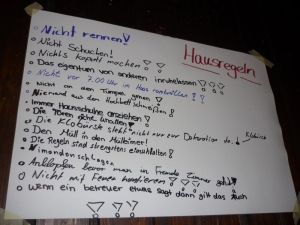 Hausregeln
Nicht rennen!
Nicht Schucken!
Nichts kaputt machen!
Das eigentum von anderen in ruhe lassen!
Nicht vor 7.00 Uhr in Haus rumbrüllen!!
Nicht an den Tümpel
Niemand aus den Hochbett schmeißen!
Immer Hausschuhe anziehen
Die Türen nicht knallen!
Die Klobürste steht nicht nur zur Dekoration da.
Klobürste
Den Müll in den Mülleimer!
Die Regeln sind strengstens einzuhalten!
Nimanden schlagen
Anklopfen bevor man in Fremde Zimmer geht!
Nicht mit Feuer hantieren!
Wenn ein betreuer etwas sagt dann gilt das Auch
! ! !